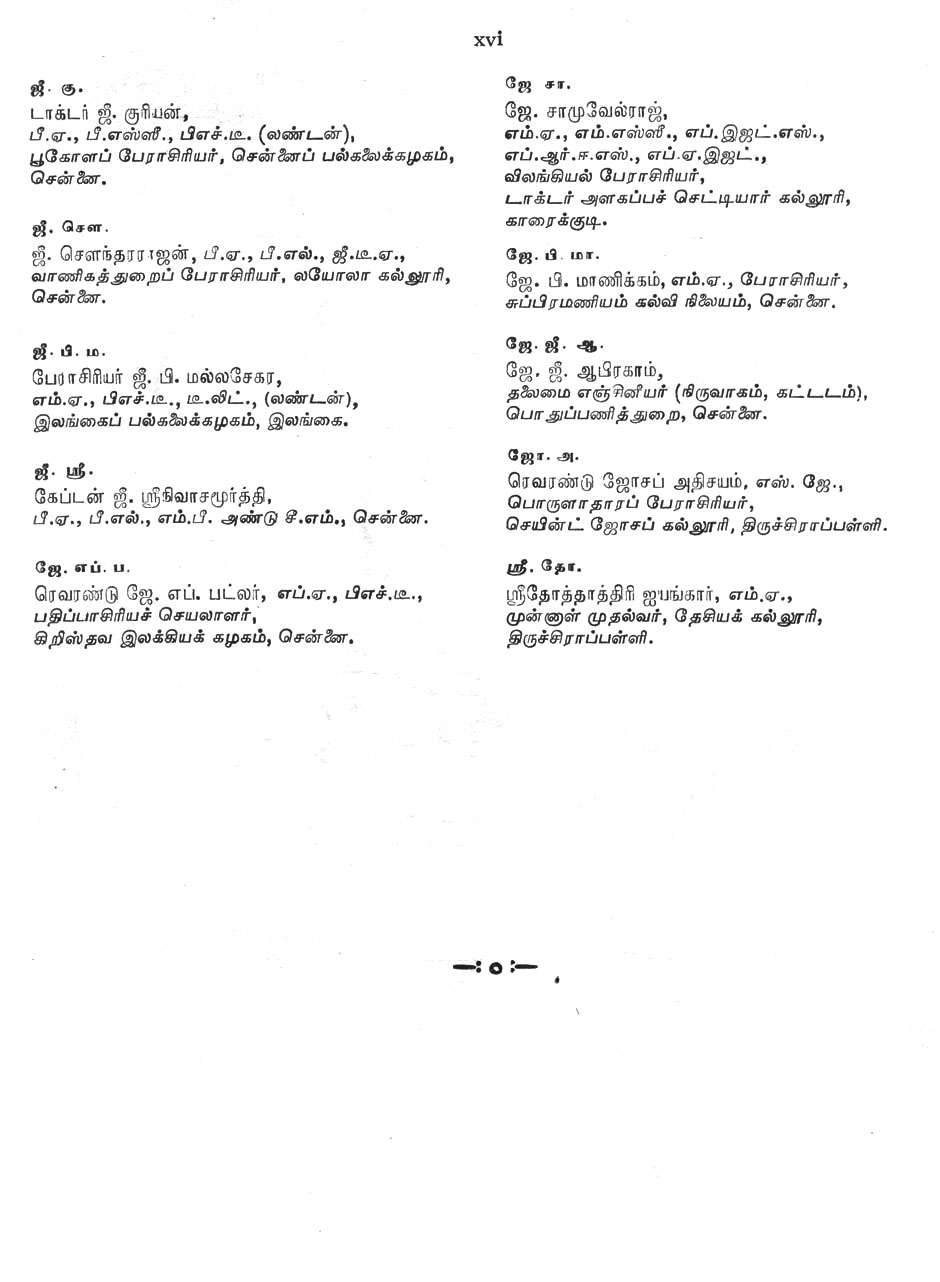 xvi
ஜீ. கு.
டாக்டர் ஜீ. குரியன்,
பீ.ஏ., பீ.எஸ்ஸீ., பிஎச்.டீ. (லண்டன்),
பூகோளப் பேராசிரியர், சென்னைப் பல்கலைக்கழகம்,
சென்னை.
ஜீ. சௌ.
ஜீ. சௌந்தரராஜன், பீ.ஏ., பீ.எல்., ஜீ.டீ.ஏ.,
வாணிகத்துறைப் பேராசிரியர், லயோலா கல்லூரி,
சென்னை.
ஜீ. பி. ம.
பேராசிரியர் ஜீ. பி. மல்லசேகர,
எம்.ஏ., பிஎச்.டீ., டீ.லிட்., (லண்டன்),
இலங்கைப் பல்கலைக்கழகம், இலங்கை.
ஜீ. ஸ்ரீ.
கேப்டன் ஜீ. ஸ்ரீநிவாசமூர்த்தி,
பீ.ஏ., பீ.எல்., எம்.பீ. அண்டு சீ.எம்., சென்னை.
ஜே. எப். ப.
ரெவரண்டு ஜே. எப். பட்லர், எப்.ஏ., பிஎச்.டீ.,
பதிப்பாசிரியச் செயலாளர்,
கிறிஸ்தவ இலக்கியக் கழகம், சென்னை.
ஜே சா.
ஜே. சாமுவேல்ராஜ்,
எம்.ஏ., எம்.எஸ்ஸீ., எப்.இஜட்.எஸ்.,
எப்.ஆர்.ஈ.எஸ்., எப்.ஏ.இஜட்.,
விலங்கியல் பேராசிரியர்,
டாக்டர் அளகப்பச் செட்டியார் கல்லூரி,
காரைக்குடி.
ஜே. பி. மா.
ஜே. பி. மாணிக்கம், எம்.ஏ., பேராசிரியர்,
சுப்பிரமணியம் கல்வி நிலையம், சென்னை.
ஜே. ஜீ. ஆ.
ஜே. ஜீ. ஆபிரகாம்,
தலைமை எஞ்சினீயர் (நிருவாகம், கட்டடம்),
பொதுப்பணித்துறை, சென்னை.
ஜோ. அ.
ரெவரண்டு ஜோசப் அதிசயம், எஸ். ஜே.,
பொருளாதாரப் பேராசிரியர்,
செயின்ட் ஜோசப் கல்லூரி, திருச்சிராப்பள்ளி.
ஸ்ரீ. தோ.
ஸ்ரீதோத்தாத்திரி ஐயங்கார், எம்.ஏ.,
முன்னாள் முதல்வர், தேசியக் கல்லூரி,
திருச்சிராப்பள்ளி.